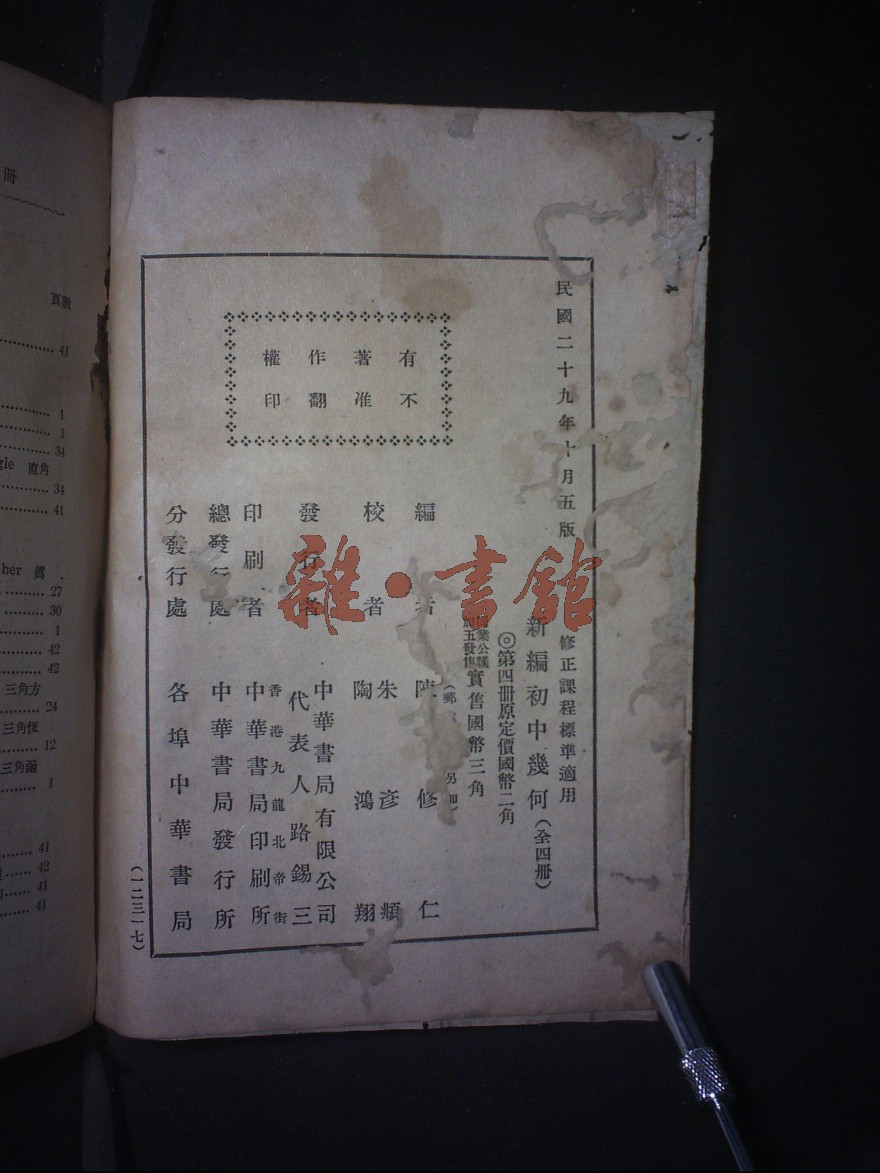 民國二十九年十月五版
修正課程標準適用
新編初中幾何(全四冊)
◎第四冊原定價國幣二角
實售國幣三角
(郵 另加)
有著作權
不准翻印
編 者 陳修仁
校者 朱彥頫
陶鴻翔
發行者 中華書局有限公司
代表人路錫三
印刷者 香港九龍北帝街
中華書局印刷所
總發行處 中華書局發行所
分發行處 各埠中華書局
(一二三一七)
雜·書館
冊
頁數
41
1
1
34
gle 直角
34
41
ber 眞
27
30
1
42
42
三角方
24
三角恆
12
三角函
1
41
42
41
41